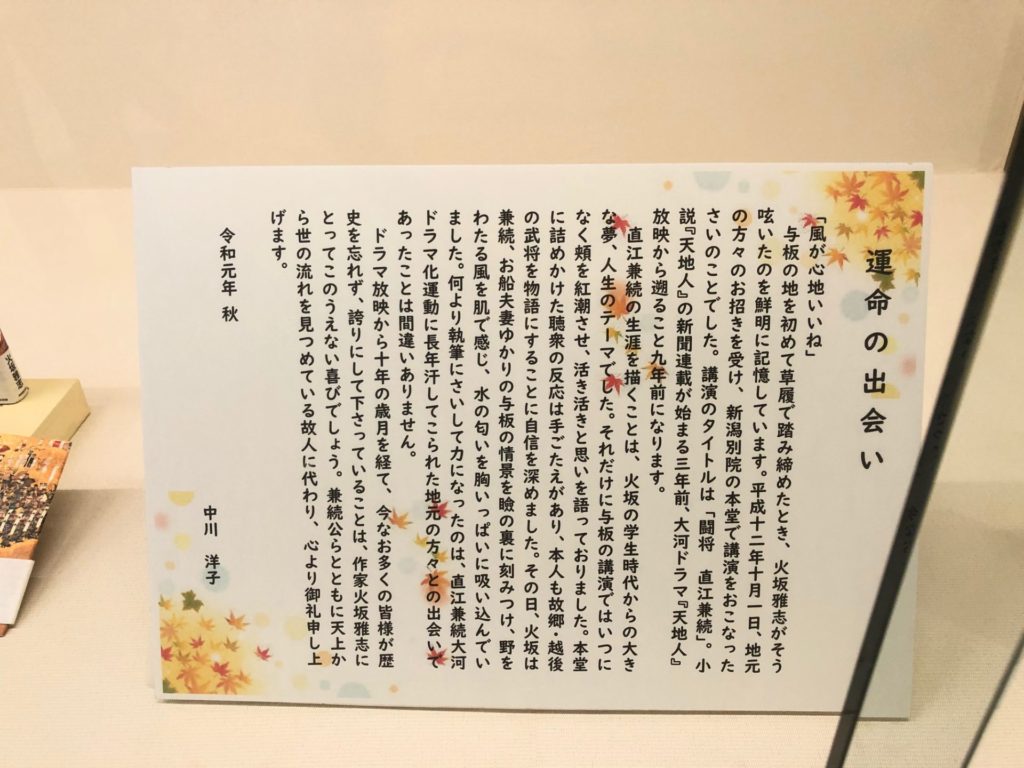 運命の出会い
「風が心地いいね」
与板の地を初めて草履で踏み締めたとき、火坂雅志がそう
呟いたのを鮮明に記憶しています。平成十二年十月一日、地元
の方々のお招きを受け、新潟別院の本堂で講演をおこなった
さいのことでした。講演のタイトルは「闘将　直江兼続」。小
説『天地人』の新聞連載が始まる三年前、大河ドラマ『天地人』
放映から遡ること九年前になります。
直江兼続の生涯を描くことは、火坂の学生時代からの大き
な夢、人生のテーマでした。それだけに与板の講演ではいつに
なく頬を紅潮させ、活き活きと思いを語っておりました。本堂
に詰めかけた聴衆の反応は手ごたえがあり、本人も故郷・越後
の武将を物語にすることに自信を深めました。その日、火坂は
兼続、お船夫妻ゆかりの与板の情景を瞼の裏に刻みつけ、野を
わたる風を肌で感じ、水の匂いを胸いっぱいに吸い込んでい
ました。何より執筆にさいして力になったのは、直江兼続大河
ドラマ化運動に長年汗してこられた地元の方々との出会いで
あったことは間違いありません。
ドラマ放映から十年の歳月を経て、今なお多くの皆様が歴
史を忘れず、誇りにして下さっていることは、作家火坂雅志に
とってこのうえない喜びでしょう。兼続公らとともに天上か
ら世の流れを見つめている故人に代わり、心より御礼申し上
げます。
令和元年 秋
中川 洋子